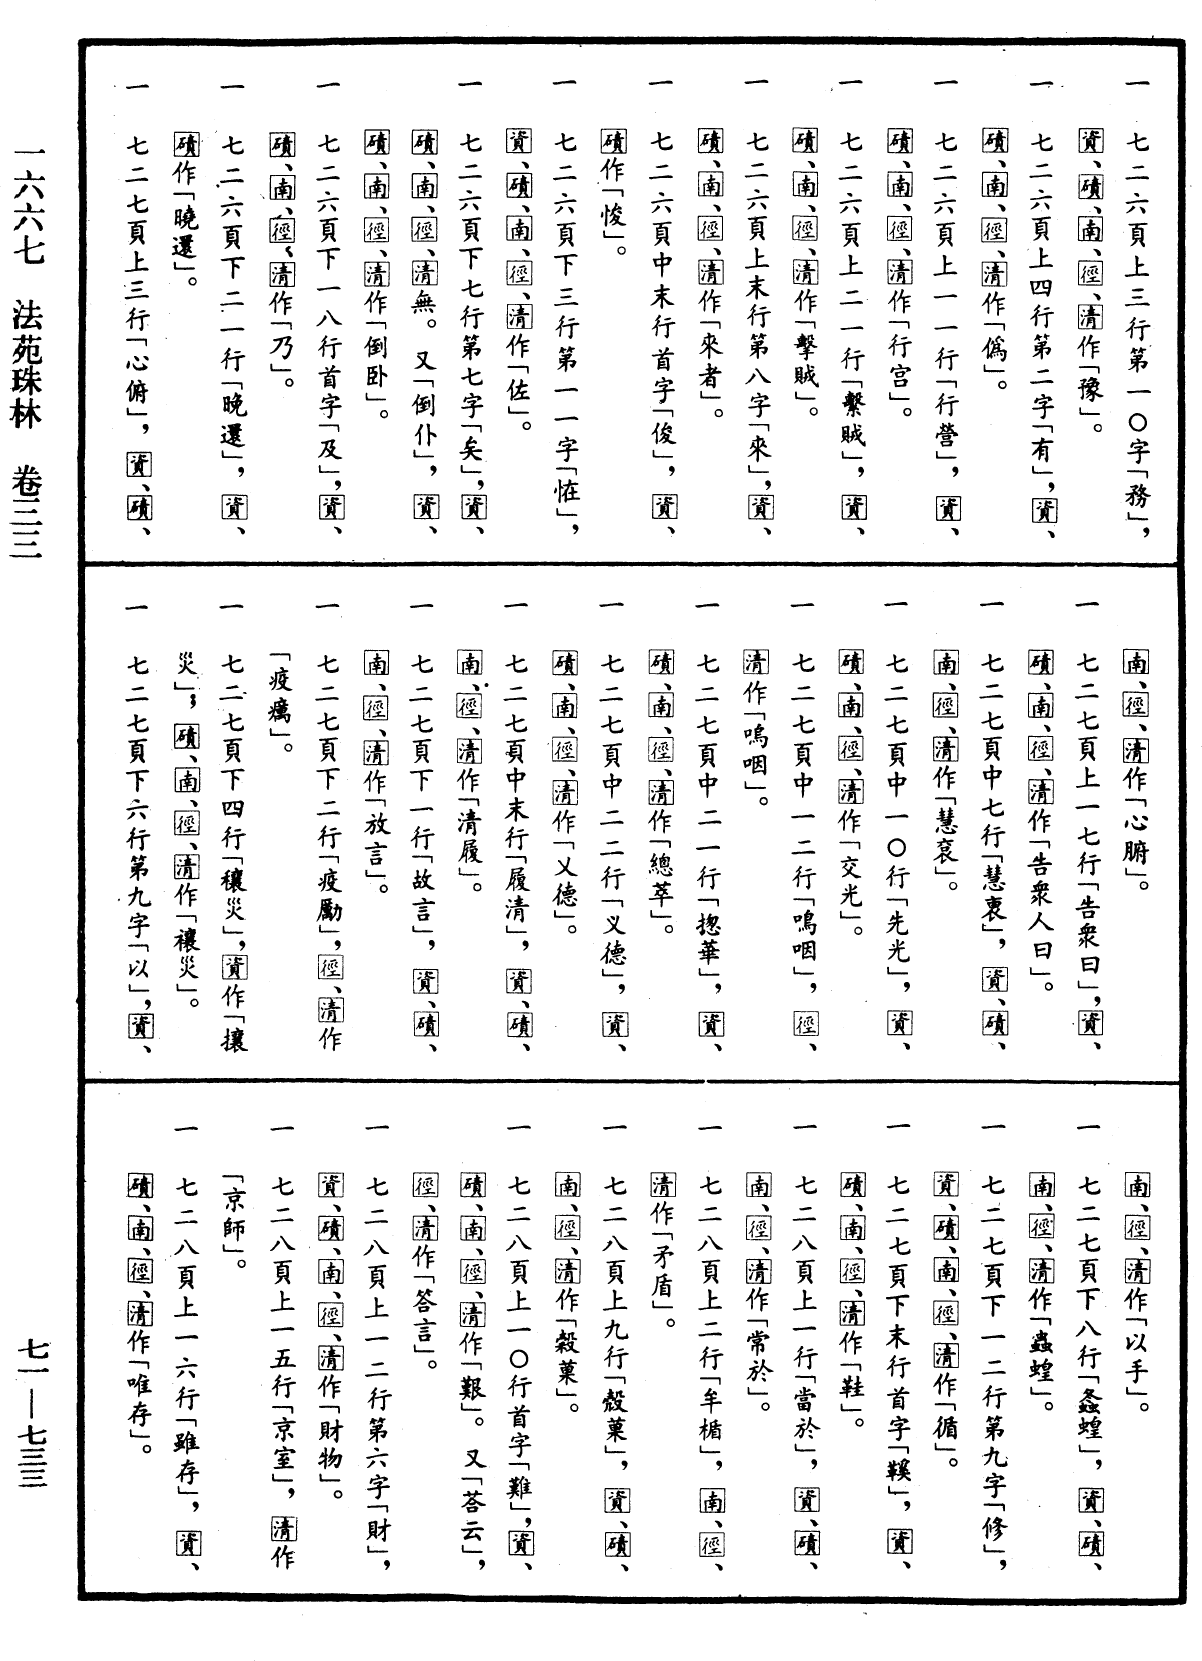 一 七二六頁上三行第一〇字「務」，
資、磧、南、徑、清作「豫」。
一 七二六頁上四行第二字「有」，資、
磧、南、徑、清作「偽」。
一 七二六頁上一一行「行營」，資、
磧、南、徑、清作「行宮」。
一 七二六頁上二一行「繫賊」，資、
磧、南、徑、清作「擊賊」。
一 七二六頁上末行第八字「來」，資、
磧、南、徑、清作「來者」。
一 七二六頁中末行首字「俊」，資、
磧作「悛」。
一 七二六頁下三行第一一字「恠」，
資、磧、南、徑、清作「佐」。
一 七二六頁下七行第七字「矣」，資、
磧、南、徑、清無。又「倒仆」，資、
磧、南、徑、清作「倒卧」。
一 七二六頁下一八行首字「及」，資、
磧、南、徑、清作「乃」。
一 七二六頁下二一行「晚還」，資、
磧作「曉還」。
一 七二七頁上三行「心俯」，資、磧、
南、徑、清作「心腑」。
一 七二七頁上一七行「告衆曰」，資、
磧、南、徑、清作「告衆人曰」。
一 七二七頁中七行「慧衷」，資、磧、
南、徑、清作「慧裒」。
一 七二七頁中一〇行「先光」，資、
磧、南、徑、清作「交光」。
一 七二七頁中一二行「鳴咽」，徑、
清作「嗚咽」。
一 七二七頁中二一行「揔華」，資、
磧、南、徑、清作「總萃」。
一 七二七頁中二二行「义德」，資、
磧、南、徑、清作「乂德」。
一 七二七頁中末行「履清」，資、磧、
南、徑、清作「清履」。
一 七二七頁下一行「故言」，資、磧、
南、徑、清作「放言」。
一 七二七頁下二行「疫勵」，徑、清作
「疫癘」。
一 七二七頁下四行「穰災」，資作「攘
災」，磧、南、徑、清作「禳災」。
一 七二七頁下六行第九字「以」，資、
南、徑、清作「以手」。
一 七二七頁下八行「螽蝗」，資、磧、
南、徑、清作「蟲蝗」。
一 七二七頁下一二行第九字「修」，
資、磧、南、徑、清作「循」。
一 七二七頁下末行首字「鞵」，資、
磧、南、徑、清作「鞋」。
一 七二八頁上一行「當於」，資、磧、
南、徑、清作「常於」。
一 七二八頁上二行「牟楯」，南、徑、
清作「矛盾」。
一 七二八頁上九行「殼菓」，資、磧、
南、徑、清作「榖菓」。
一 七二八頁上一〇行首字「難」，資、
磧、南、徑、清作「艱」。又「荅云」，
徑、清作「答言」。
一 七二八頁上一二行第六字「財」，
資、磧、南、徑、清作「財物」。
一 七二八頁上一五行「京室」，清作
「京師」。
一 七二八頁上一六行「雖存」，資、
磧、南、徑、清作「唯存」。
一六六七 法苑珠林 卷三三
七一—七三三